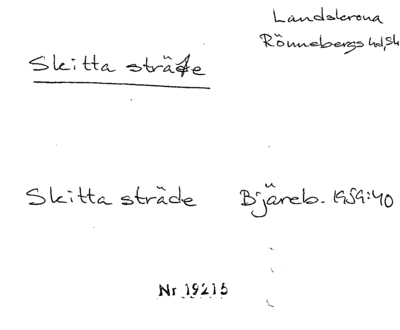 Landskrona
Rönnebergs hd, Sk
Skitta sträte
Skitta sträde Bjäreb. 1959:40
Nr 19215